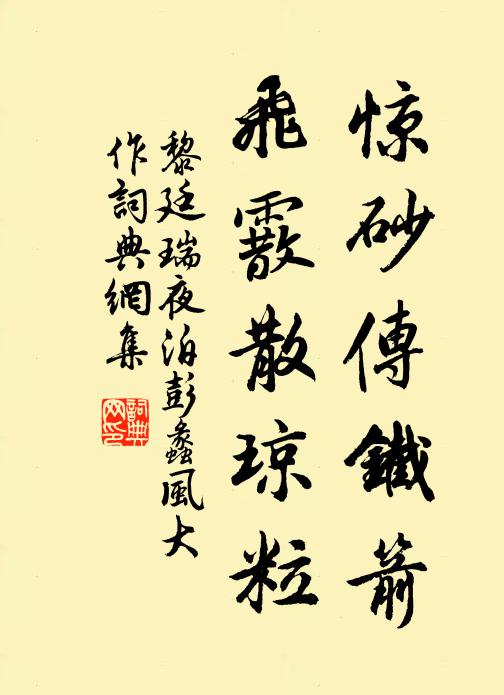 惊砂傳鐵箭
飛霰散琼粒
黎廷瑞夜泊彭蠡風大
作詞典網集
詞典
网印